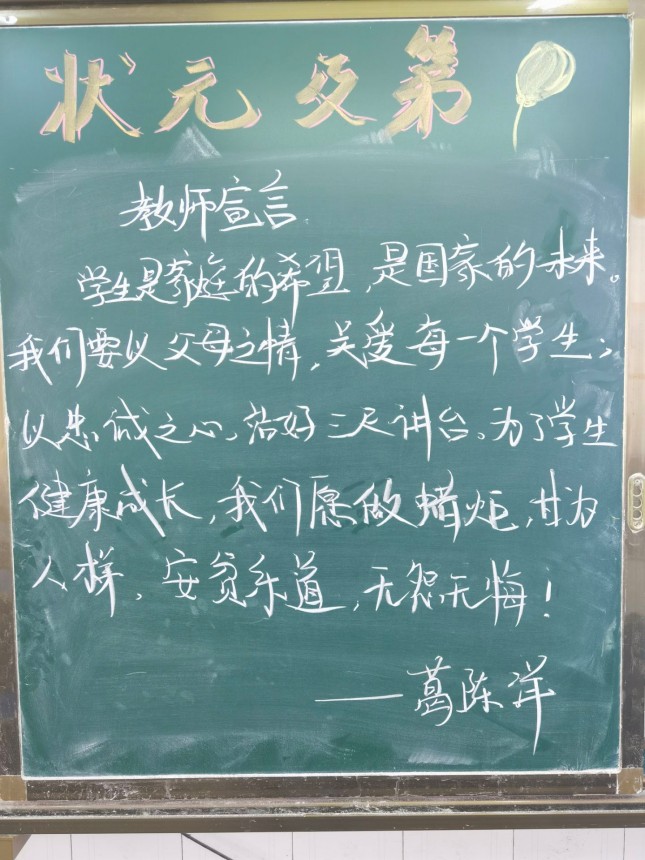 状元及第
教师宣言
学生是家庭的希望,是国家的未来。
我们要以父母之情,关爱每一个学生;
以忠诚之心,站好三尺讲台。为了学生
健康成长,我们愿做蜡炬,甘为
人梯,安贫乐道,无怨无悔!
——葛陈洋